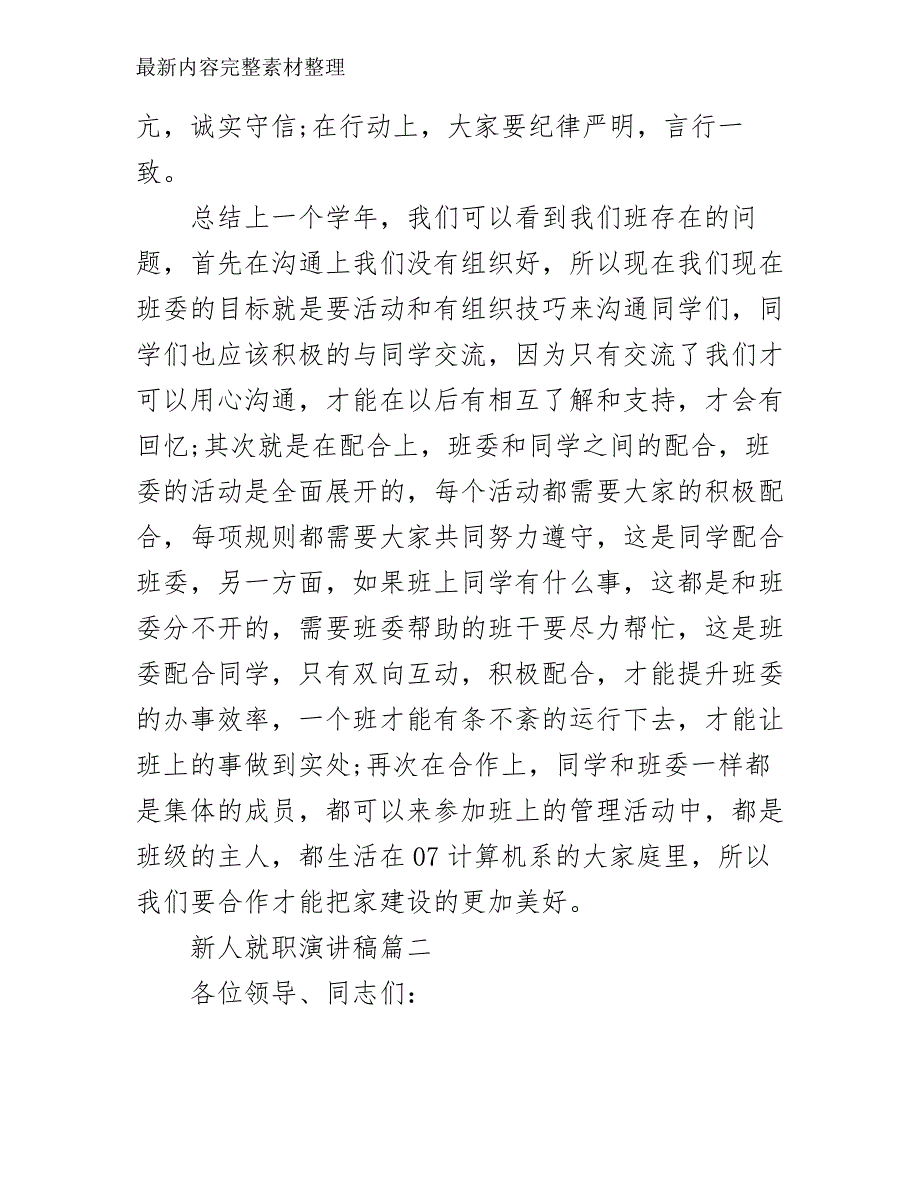 最新内容完整素材整理
亢，诚实守信;在行动上，大家要纪律严明，言行一
致。
总结上一个学年，我们可以看到我们班存在的问
题，首先在沟通上我们没有组织好，所以现在我们现在
班委的目标就是要活动和有组织技巧来沟通同学们，同
学们也应该积极的与同学交流，因为只有交流了我们才
可以用心沟通，才能在以后有相互了解和支持，才会有
回忆;其次就是在配合上，班委和同学之间的配合，班
委的活动是全面展开的，每个活动都需要大家的积极配
合，每项规则都需要大家共同努力遵守，这是同学配合
班委，另一方面，如果班上同学有什么事，这都是和班
委分不开的，需要班委帮助的班干要尽力帮忙，这是班
委配合同学，只有双向互动，积极配合，才能提升班委
的办事效率，一个班才能有条不紊的运行下去，才能让
班上的事做到实处;再次在合作上，同学和班委一样都
是集体的成员，都可以来参加班上的管理活动中，都是
班级的主人，都生活在07计算机系的大家庭里，所以
我们要合作才能把家建设的更加美好。
新人就职演讲稿篇二
各位领导、同志们：